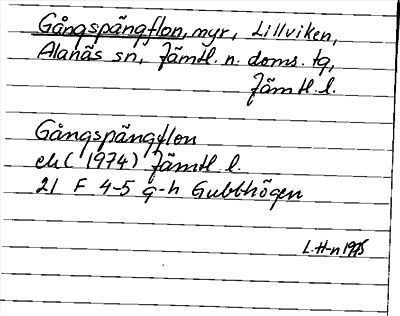 Gångspångflon, myr, Lillviken,
Alanäs sn, Jämtl. n. doms. tg,
Jämtl. l.
Gångspångflon
ek (1974) Jämtl. l.
21 F 4-5 g-h Gubbhögen
L. H-n 1975